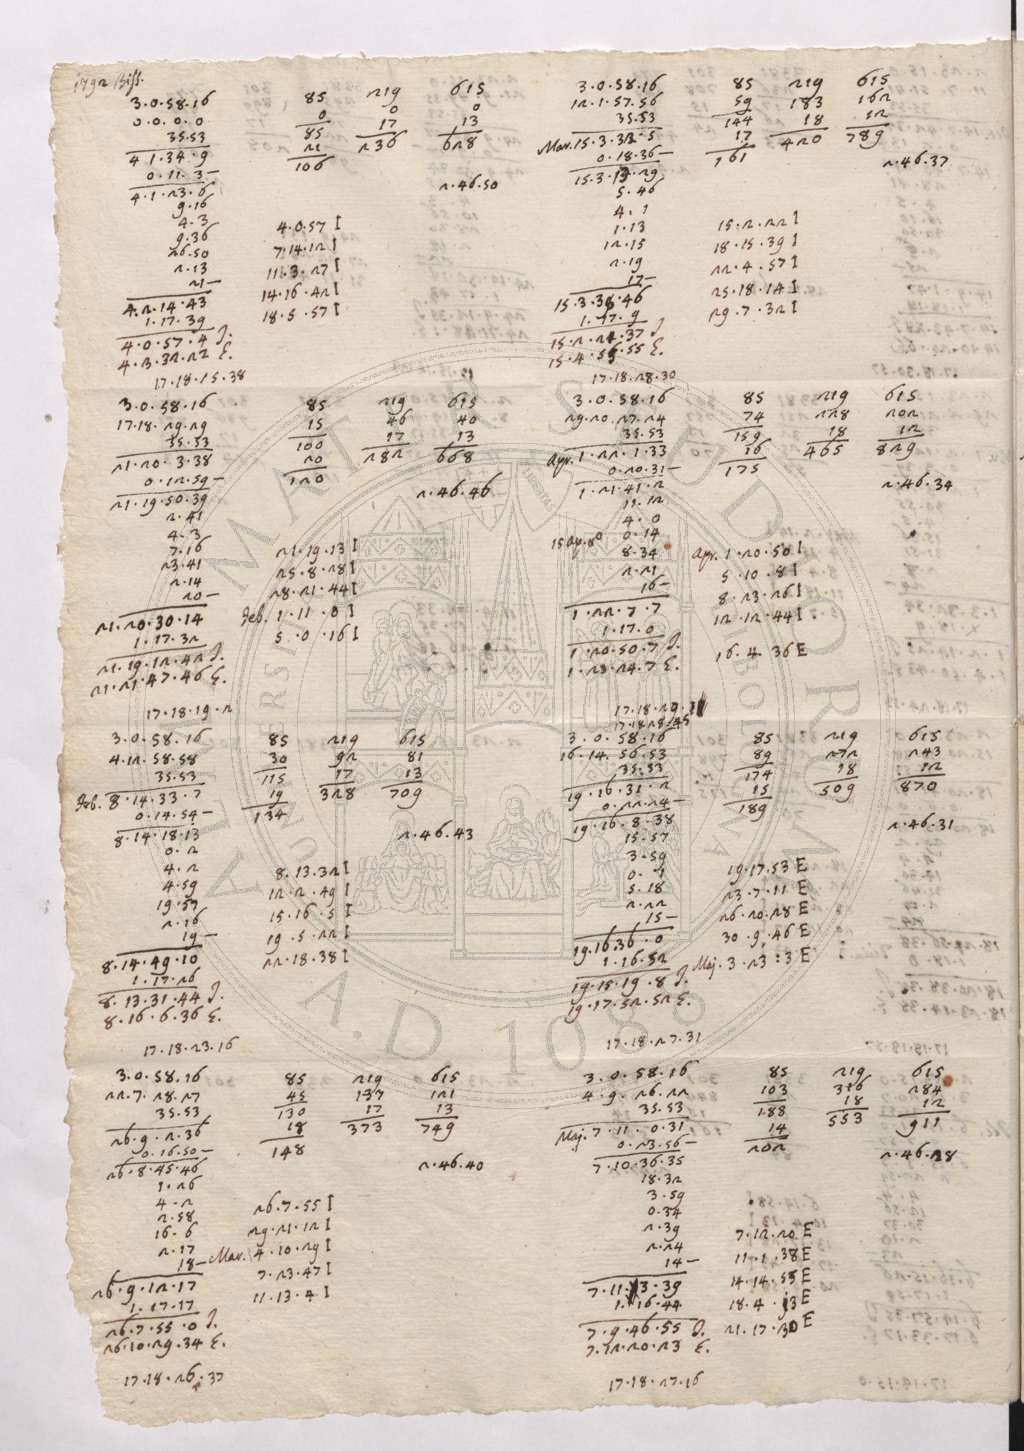 1792 Biss.
3.0.58.16 85 219 615
0.0.0.0 0 0 0
35.53 85 17 13
4.1.34.9 21 236 628
0.11.3– 106
4.1.23.6 2.46.50
9.16
4.3 4.0.57 I
9.36 7.14.12 I
26.50 11.3.27 I
2.13 14.16.42 I
21– 18.5.57 I
4.2.14.43
1.17.39
4.0.57.4 J.
4.3.32.22 E.
17.18.15.38
3.0.58.16 85 219 615
17.18.29.29 15 46 40
35.53 100 17 13
21.20.3.38 20 282 668
0.12.59– 120
21.19.50.39 2.46.46
2.41
4.3
7.16 21.19.13 I
23.41 25.8.28 I
2.14 28.21.44 I
20– Feb. 1.11.0 I
21.20.30.14 5.0.16 I
1.17.32
21.19.12.42 J.
21.21.47.46 E.
17.18.19.2
3.0.58.16 85 219 615
4.12.58.58 30 92 81
35.53 115 17 13
Feb. 8.14.33.7 19 328 709
0.14.54– 134
8.14.18.13 2.46.43
0.2
4.2 8.13.32 I
4.59 12.2.49 I
19.57 15.16.5 I
2.16 19.5.22 I
19– 22.18.38 I
8.14.49.10
1.17.26
8.13.31.44 J.
8.16.6.36 E.
17.18.23.16
3.0.58.16 85 219 615
22.7.28.27 45 137 121
35.53 130 17 13
26.9.2.36 18 373 749
0.16.50– 148
26.8.45.46 2.46.40
1.26
4.2 26.7.55 I
2.58 29.21.12 I
16.6 Mar. 4.10.29 I
2.17 7.23.47 I
18– 11.13.4 I
26.9.12.17
1.17.17
26.7.55.0 J.
26.10.29.34 E.
17.18.26.37
3.0.58.16 85 219 615
12.1.57.56 59 183 162
35.53 144 18 12
Mar. 15.3.32.5 17 420 789
0.18.36– 161
15.3.13.29 2.46.37
5.46
4.1
1.13 15.2.22 I
12.15 18.15.39 I
2.19 22.4.57 I
17– 25.18.14 I
15.3.39.46 29.7.32 I
1.17.9
15.2.22.37 J.
15.4.56.55 E.
17.18.28.30
3.0.58.16 85 219 615
29.20.27.24 74 228 202
35.53 159 18 12
Apr. 1.22.1.33 16 465 829
0.20.31– 175
1.21.41.2 2.46.34
11.12
4.0
0.14
8.34 Apr. 1.20.50 I
2.21 5.10.8 I
16– 8.23.26 I
1.22.7.7 12.12.44 I
1.17.0
1.20.50.7 J. 16.4.36 E
1.23.24.7 E.
17.18.28.35
3.0.58.16 85 219 615
16.14.56.53 89 272 243
35.53 174 18 12
19.16.31.2 15 509 870
0.22.24– 189
19.16.8.38 2.46.31
15.57
3.59
0.1 19.17.53 E
5.18 23.7.11 E
2.22 26.20.28 E
15– 30.9.46 E
19.16.36.0 Maj. 3.23.3 E
1.16.52
19.15.19.8 J.
19.17.52.52 E.
17.18.27.31
3.0.58.16 85 219 615
4.9.26.22 103 316 284
35.53 188 18 12
Maj. 7.11.0.31 14 553 911
0.23.56– 202
7.10.36.35 2.46.28
18.32
3.59
0.34
2.39 7.12.20 E
2.24 11.1.38 E
14– 14.14.55 E
7.11.3.39 18.4.13 E
1.16.44 21.17.30 E
7.9.46.55 J.
7.12.20.23 E.
17.18.27.16